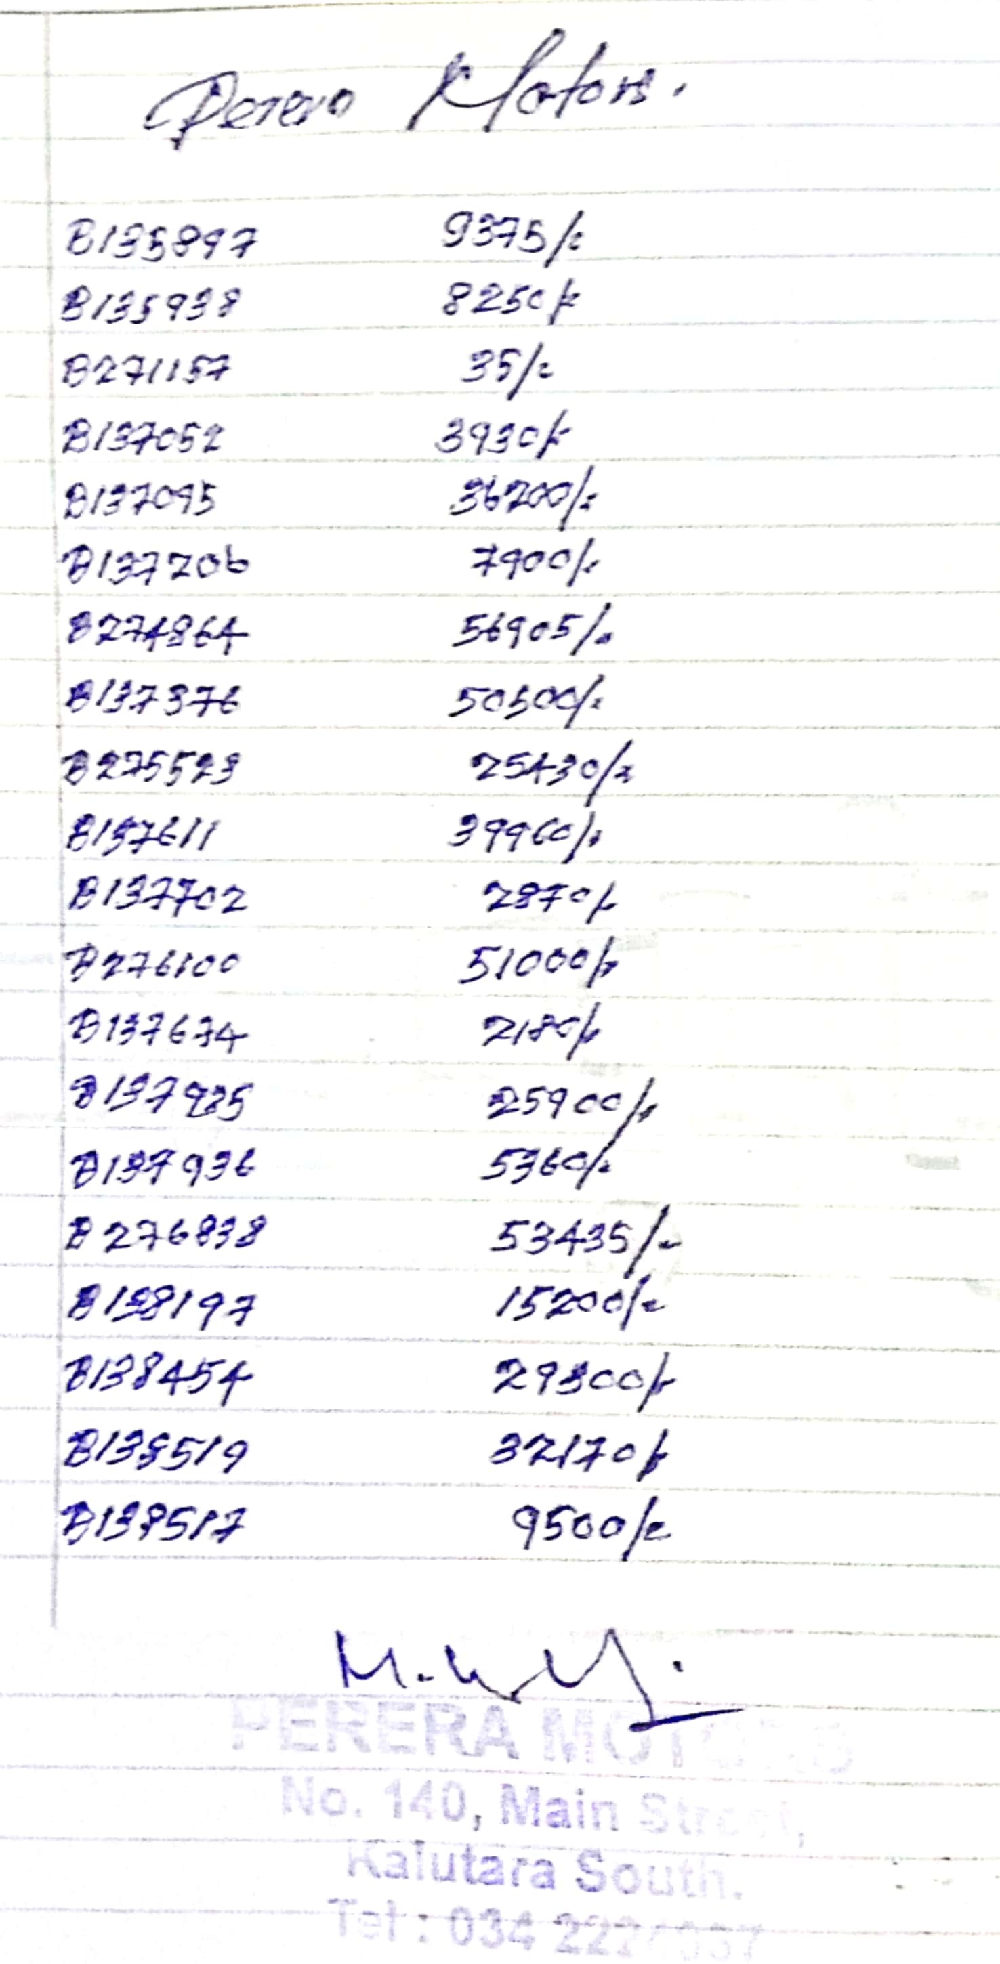 Perera Motors.
B135897 9375/=
B135938 8250/=
B271157 35/=
B137052 3930/=
B137095 36200/=
B137206 7900/=
B274864 56905/=
B137376 50300/=
B275523 25430/=
B137611 39960/=
B137702 2870/=
B276100 51000/=
B137674 2180/=
B137935 25900/=
B137936 5360/=
B276838 53435/=
B138197 15200/=
B138454 29300/=
B138519 32170/=
B138517 9500/=
PERERA MOTORS
No. 140, Main Street,
Kalutara South.
Tel : 034